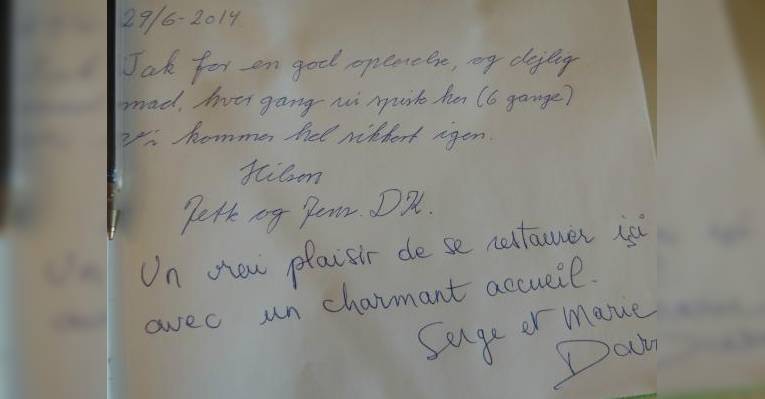 29/6-2014
Tak for en god oplevelse, og dejlig
mad, hver gang vi spiste her (6 gange)
Vi kommer hel sikkert igen.
Hilsen
Jette og Jens. DK.
Un vrai plaisir de se restaurer içi
avec un charmant accueil.
Serge et Marie